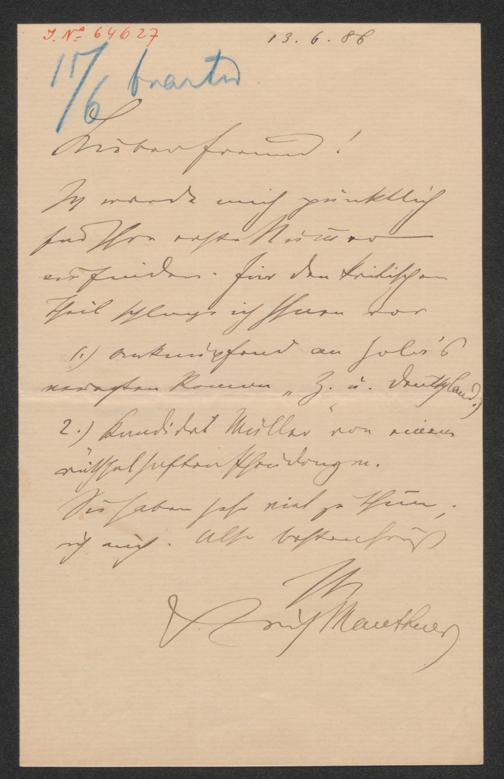 J. No 64627
13.6.86
17/6 beantw
Lieber Freund!
Ich werde mich pünktlich
für Ihre erste Nummer
einfinden. Für den kritischen
Theil schlage ich Ihnen vor
1.) anknüpfend an
neuesten Roman „Z. u. Deutschland.)
2.) „Kandidat Müller" von einem
räthselhaften
Sie haben sehr viel zu thun,
ich auch. Also besten Gruß
Ihr
Fritz Mauthner